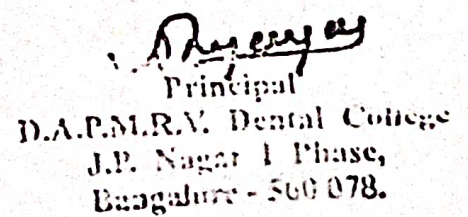 Principal
D.A.P.M.R.V. Dental College
J.P. Nagar I Phase,
Bangalore - 560 078.